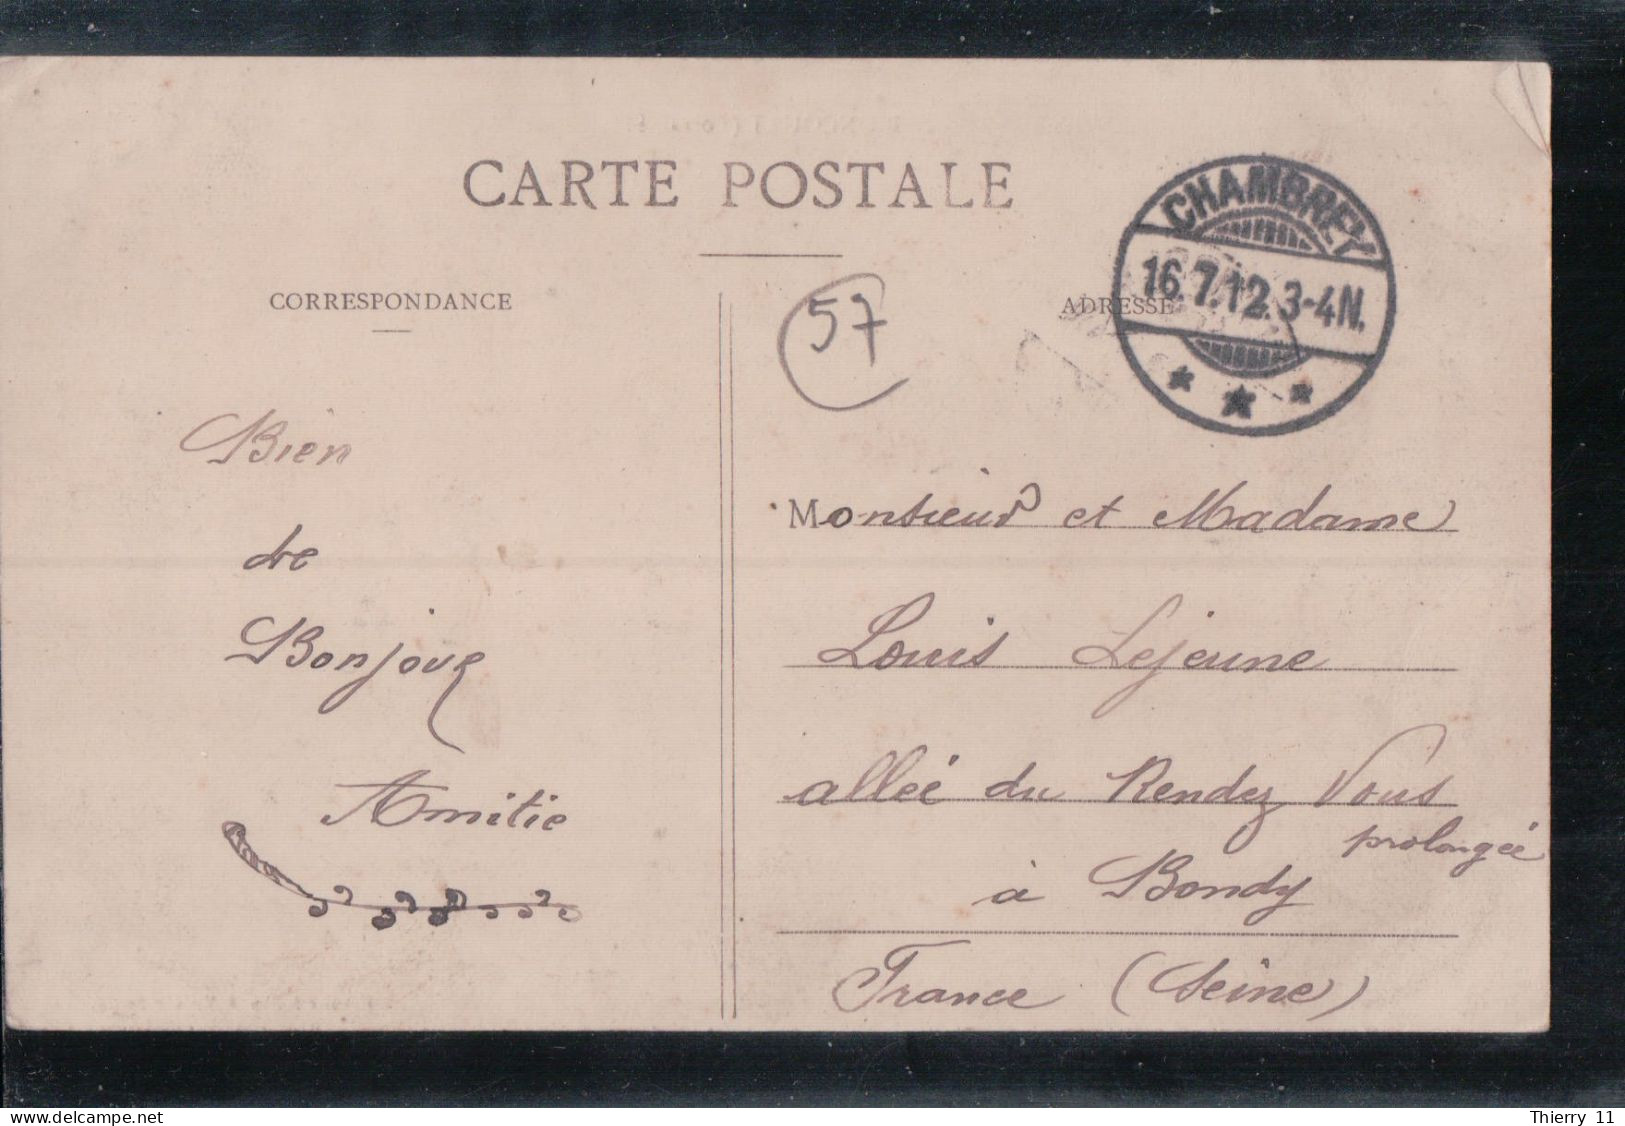 CARTE POSTALE
CORRESPONDANCE
ADRESSE
CHAMBREY
16.7.12.3-4N.
57
Bien
de
Bonjour
Amitie
Monsieur et Madame
Louis Lejeune
allée du Rendez Vous
prolongée
à Bondy
France (Seine)
www.delcampe.net
Thierry 11